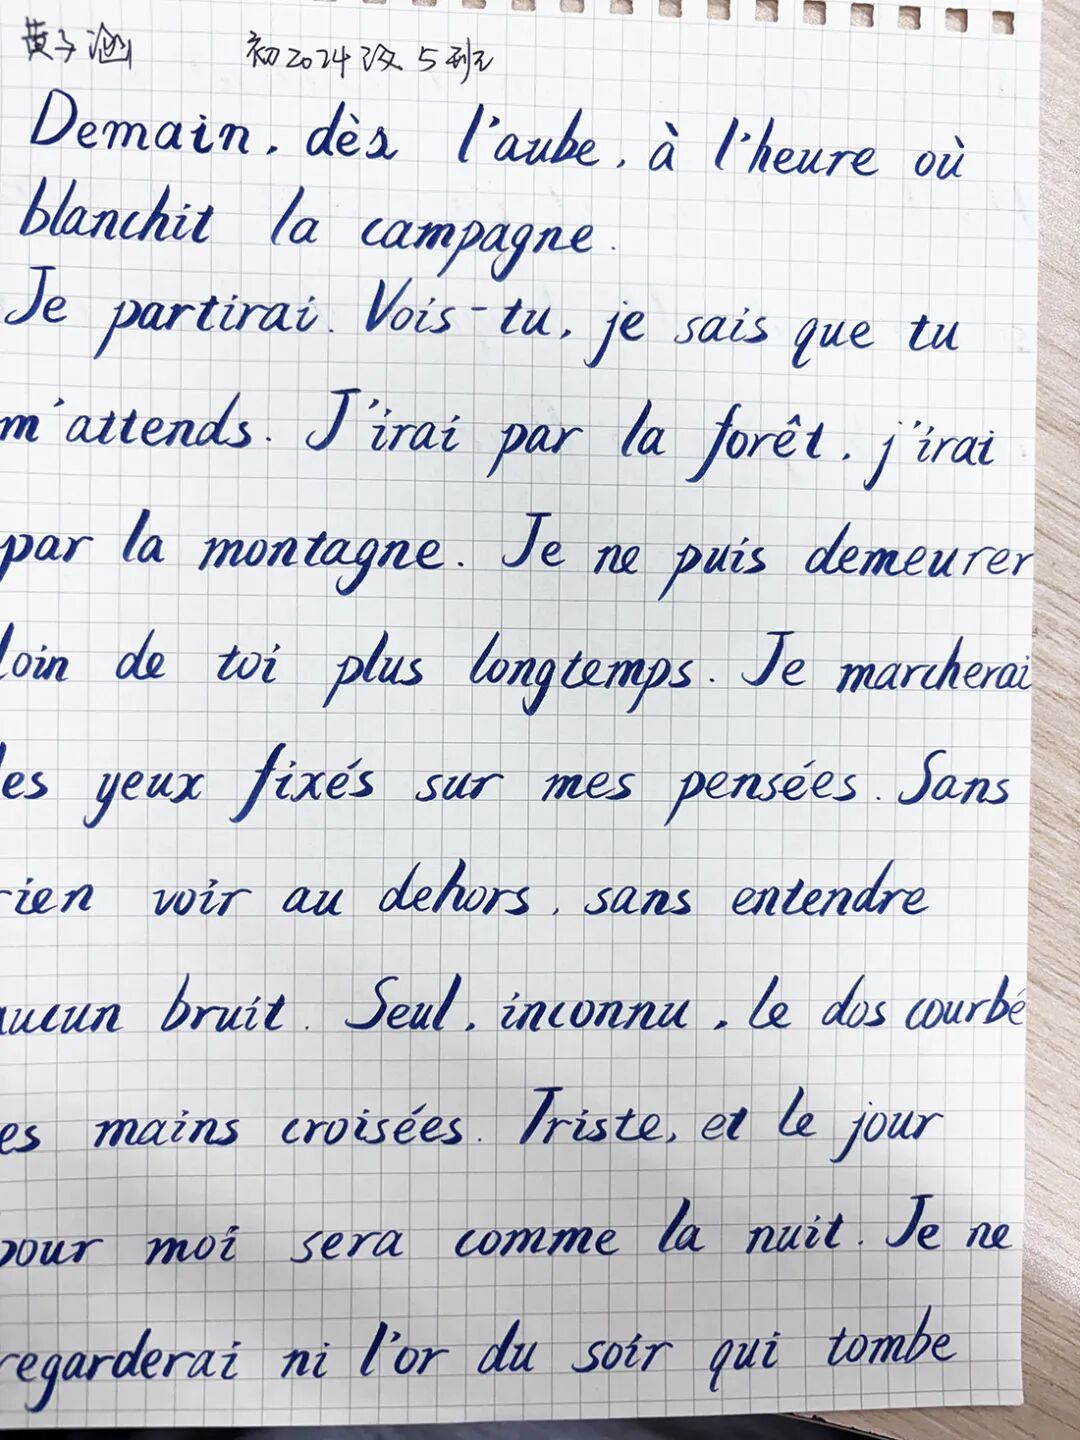 黄子涵 初2024级5班
Demain, dès l'aube, à l'heure où
blanchit la campagne.
Je partirai. Vois-tu, je sais que tu
m'attends. J'irai par la forêt, j'irai
par la montagne. Je ne puis demeurer
loin de toi plus longtemps. Je marcherai
les yeux fixés sur mes pensées. Sans
rien voir au dehors, sans entendre
aucun bruit. Seul, inconnu, le dos courbé
es mains croisées. Triste, et le jour
pour moi sera comme la nuit. Je ne
regarderai ni l'or du soir qui tombe